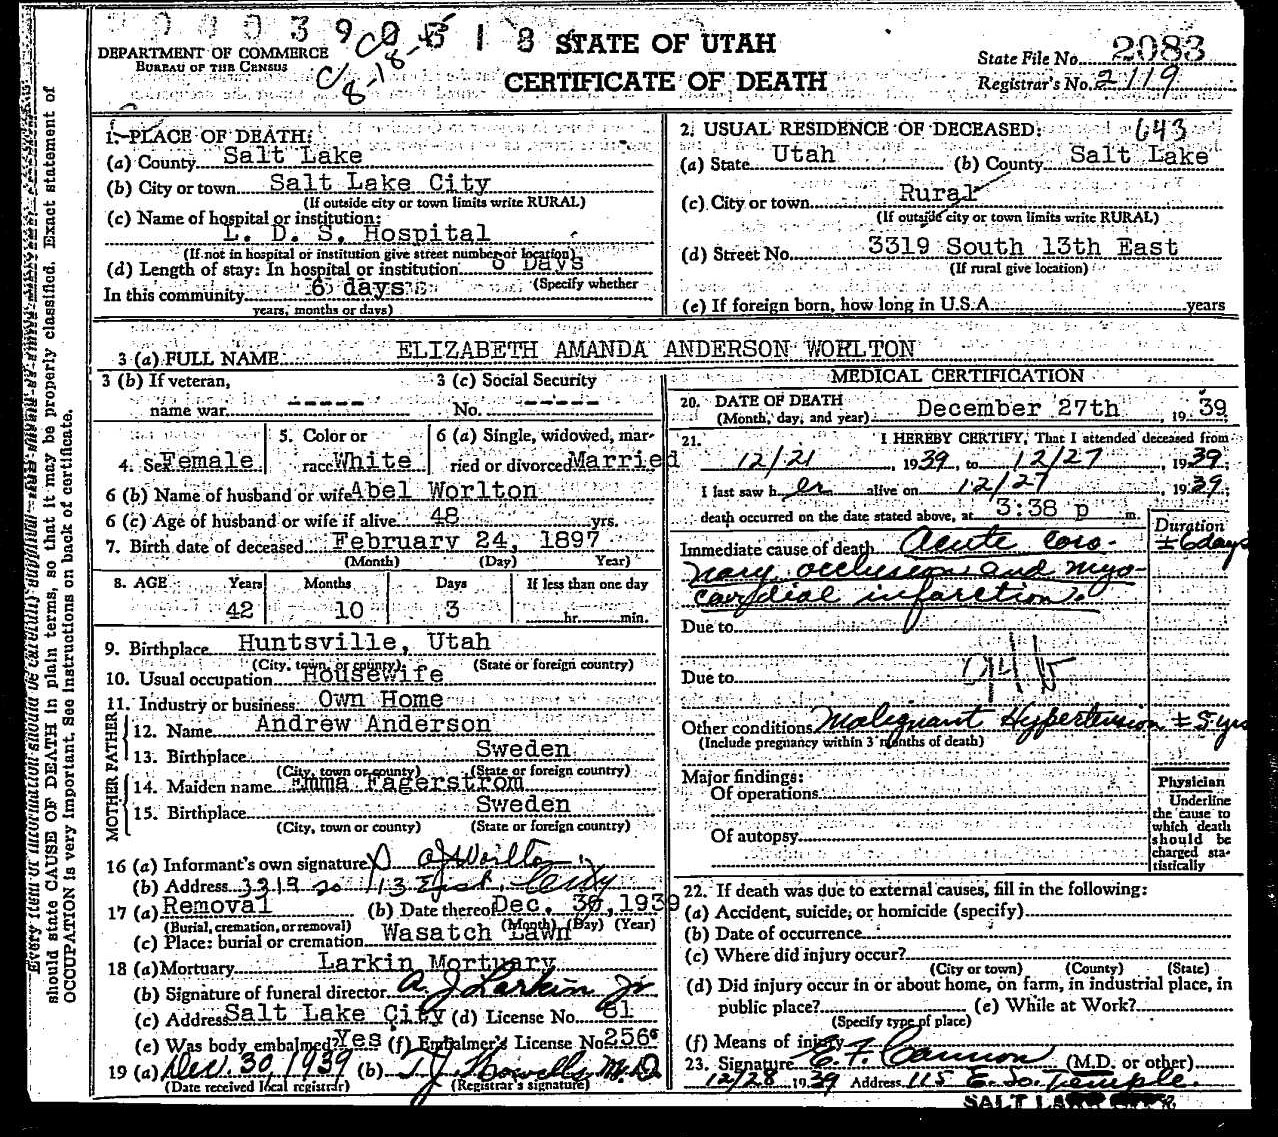 DEPARTMENT OF COMMERCE
BUREAU OF THE CENSUS
C/8-18-
STATE OF UTAH
CERTIFICATE OF DEATH
State File No. 2083
Registrar's No. 2119
Every item of information should be carefully supplied. should state CAUSE OF DEATH in plain terms, so that it may be properly classified. Exact statement of
OCCUPATION is very important. See instructions on back of certificate.
1. PLACE OF DEATH:
(a) County Salt Lake
(b) City or town Salt Lake City
(If outside city or town limits write RURAL)
(c) Name of hospital or institution:
L. D. S. Hospital
(If not in hospital or institution give street number or location)
(d) Length of stay: In hospital or institution 6 Days
(Specify whether
In this community 6 days
years, months or days)
2. USUAL RESIDENCE OF DECEASED: 643
(a) State Utah (b) County Salt Lake
(c) City or town Rural
(If outside city or town limits write RURAL)
(d) Street No. 3319 South 13th East
(If rural give location)
(e) If foreign born, how long in U.S.A. years
3 (a) FULL NAME ELIZABETH AMANDA ANDERSON WORLTON
3 (b) If veteran, name war -----
3 (c) Social Security No. -----
4. Sex Female
5. Color or race White
6 (a) Single, widowed, married or divorced Married
6 (b) Name of husband or wife Abel Worlton
6 (c) Age of husband or wife if alive 48 yrs.
7. Birth date of deceased February 24, 1897
(Month) (Day) Year)
8. AGE Years Months Days If less than one day
42 10 3 hr. min.
9. Birthplace Huntsville, Utah
(City, town, or county) (State or foreign country)
10. Usual occupation Housewife
11. Industry or business Own Home
FATHER
12. Name Andrew Anderson
13. Birthplace Sweden
(City, town or county) (State or foreign country)
MOTHER
14. Maiden name Emma Fagerstrom
15. Birthplace Sweden
(City, town or county) (State or foreign country)
16 (a) Informant's own signature X A J Worlton
(b) Address 3319 So 13 East. City
17 (a) Removal (b) Date thereof Dec. 30, 1939
(Burial, cremation, or removal) (Month) (Day) (Year)
(c) Place: burial or cremation Wasatch Lawn
18 (a) Mortuary Larkin Mortuary
(b) Signature of funeral director A. J. Larkin Jr
(c) Address Salt Lake City (d) License No. 81
(e) Was body embalmed? Yes (f) Embalmer's License No. 256
19 (a) Dec 30, 1939 (b) T. J. Howells M.D
(Date received local registrar) (Registrar's signature)
MEDICAL CERTIFICATION
20. DATE OF DEATH
(Month, day, and year) December 27th, 1939
21. I HEREBY CERTIFY, That I attended deceased from
12/21, 1939, to 12/27, 1939;
I last saw h er alive on 12/27, 1939;
death occurred on the date stated above, at 3:38 p m.
Duration
Immediate cause of death Acute coro- ± 6 days
nary occlusion and myo-
cardial infarction.
Due to
94b
Due to
Other conditions Malignant Hypertension ± 5 yrs
(Include pregnancy within 3 months of death)
Major findings:
Of operations
Of autopsy
Physician
Underline
the cause to
which death
should be
charged sta-
tistically
22. If death was due to external causes, fill in the following:
(a) Accident, suicide, or homicide (specify)
(b) Date of occurrence
(c) Where did injury occur?
(City or town) (County) (State)
(d) Did injury occur in or about home, on farm, in industrial place, in
public place? (e) While at Work?
(Specify type of place)
(f) Means of injury
23. Signature E. F. Cannon (M.D. or other)
12/28 1939 Address 115 E. So. Temple.
SALT LAKE